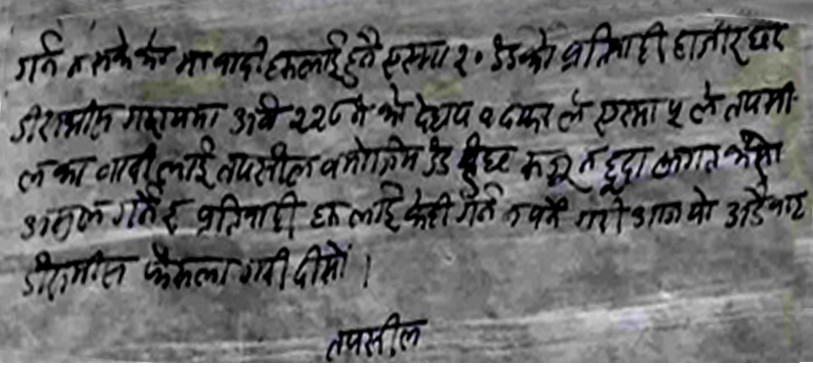 गर्न न सकेको मा वादी हरूलाई हुनै एसमा २० डंडको प्रतिवादी हाजीर छद
डीसमीस गराममा अ वं २२० नं को देहाय १ दफा ले एसमा ५ ले तपसी-
ल का वादी लाई तपसील वमोजिम डंड हुन्छ लागत
असुल गर्ने र प्रतिवादी हरू लाई केही गर्न न पर्ने गरी आज यो अड्डैबाट
डीसमीस फैसला गरी दीयौं ।
तपसील